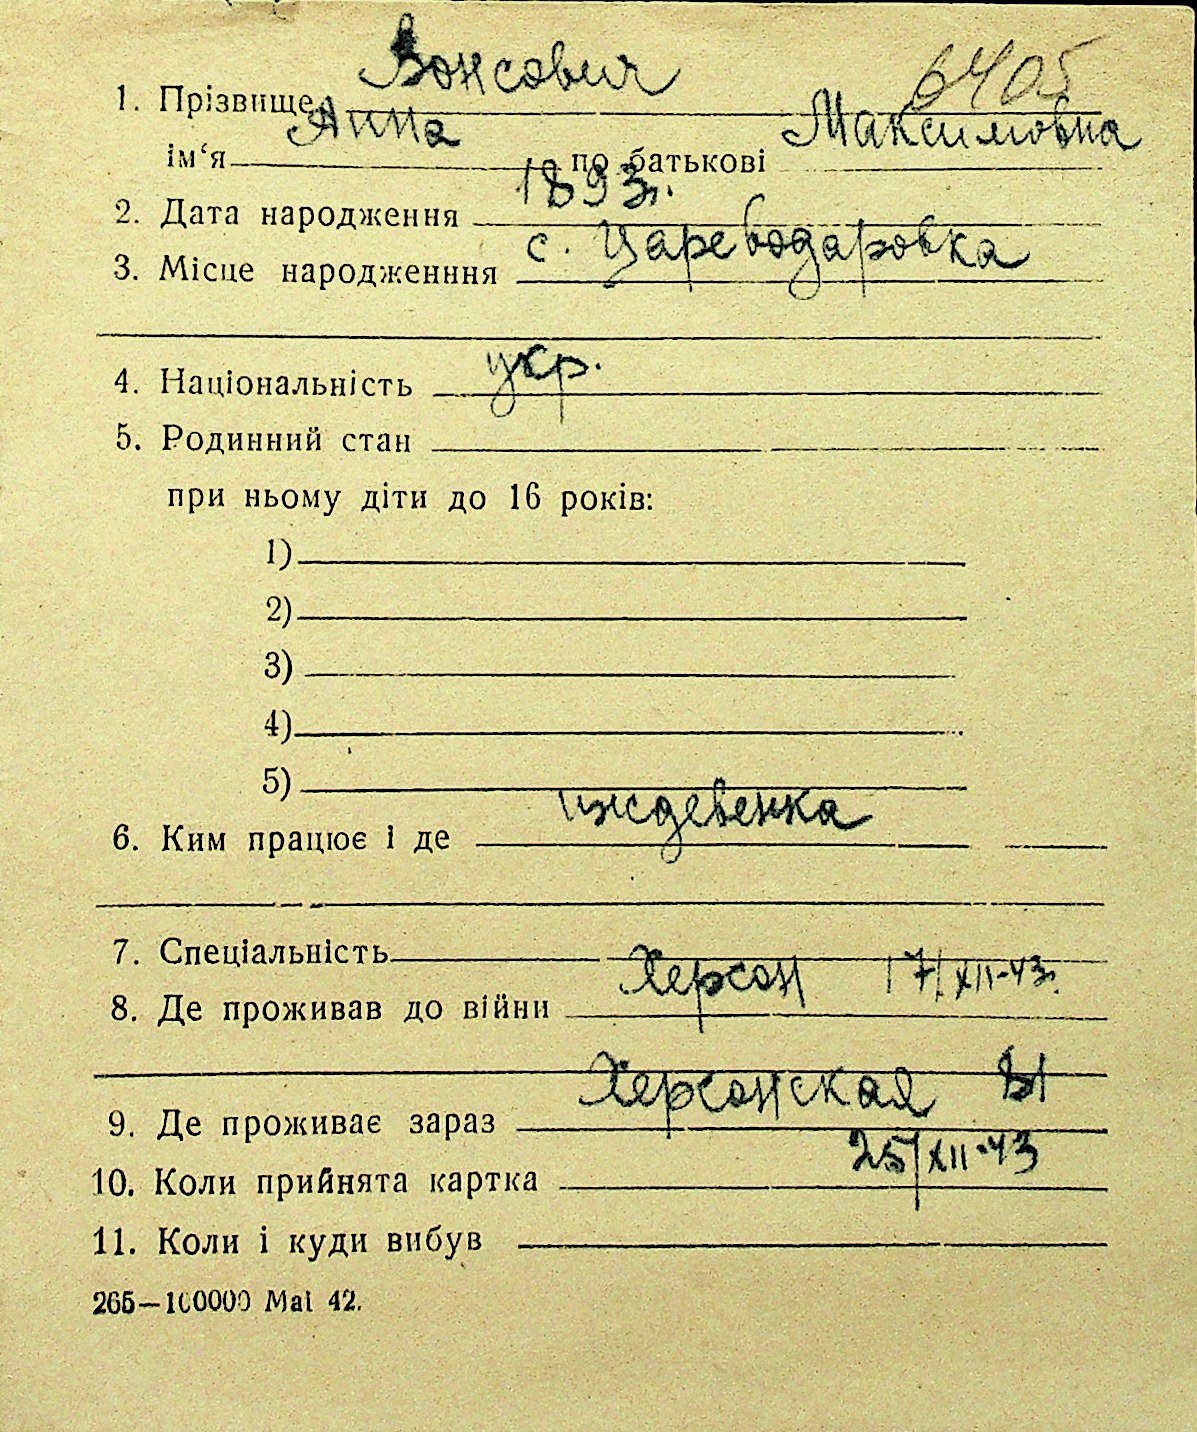 Вонсович 6405
1. Прізвище
Анна Максимовна
ім‘я по батькові
1893г.
2. Дата народження
с. Цареводаровка
3. Місце народженння
укр.
4. Національність
5. Родинний стан
при ньому діти до 16 років:
1)
2)
3)
4)
5)
иждевенка
6. Ким працює і де
7. Спеціальність
Херсон 17/XII-43г.
8. Де проживав до війни
Херсонская
9. Де проживає зараз
25/XII-43
10. Коли прийнята картка
11. Коли і куди вибув
265—100000 Mai 42.